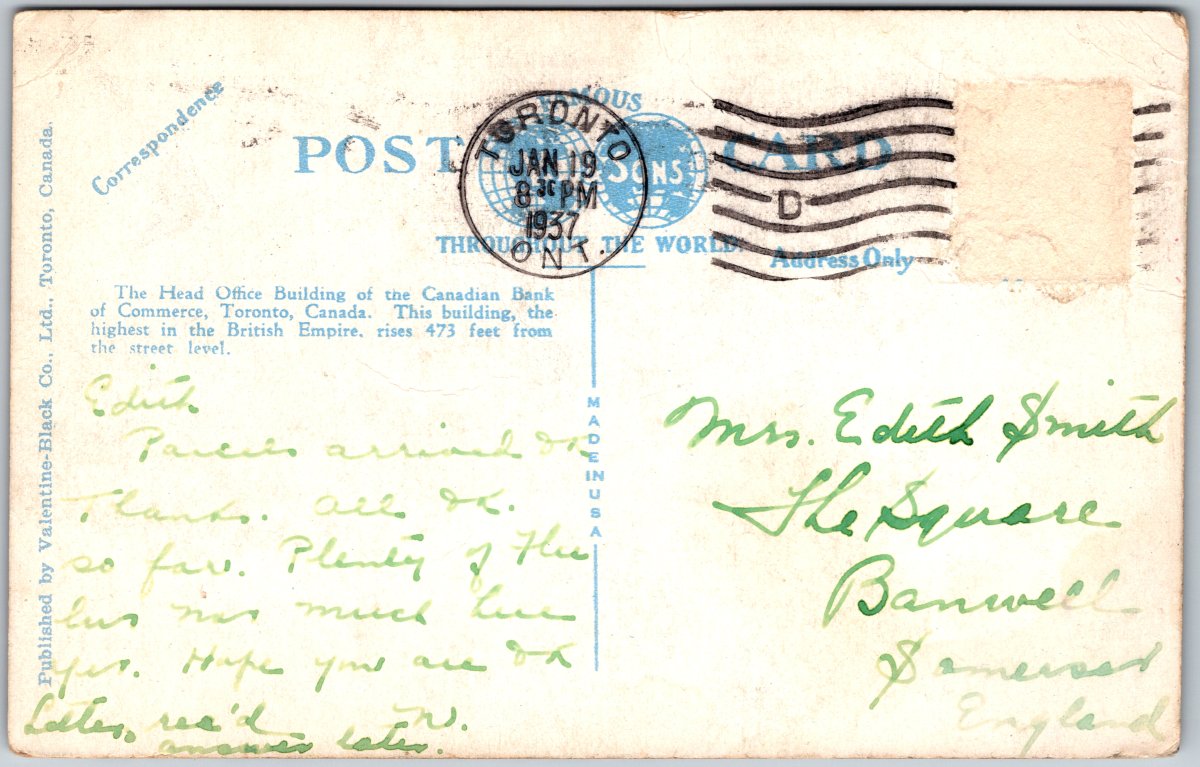 Correspondence
POST CARD
FAMOUS
SONS
THROUGHOUT THE WORLD
Address Only
TORONTO
JAN 19
8 30 PM
1937
ONT.
D
The Head Office Building of the Canadian Bank
of Commerce, Toronto, Canada. This building, the
highest in the British Empire, rises 473 feet from
the street level.
Published by Valentine-Black Co., Ltd., Toronto, Canada.
MADE IN USA
Edith
Parcels arrived OK
Thanks. All OK.
so far. Plenty of Flu
but not much here
yet. Hope you are OK
Letter rec'd W.
answer later.
Mrs. Edith Smith
The Square
Banwell
Somerset
England